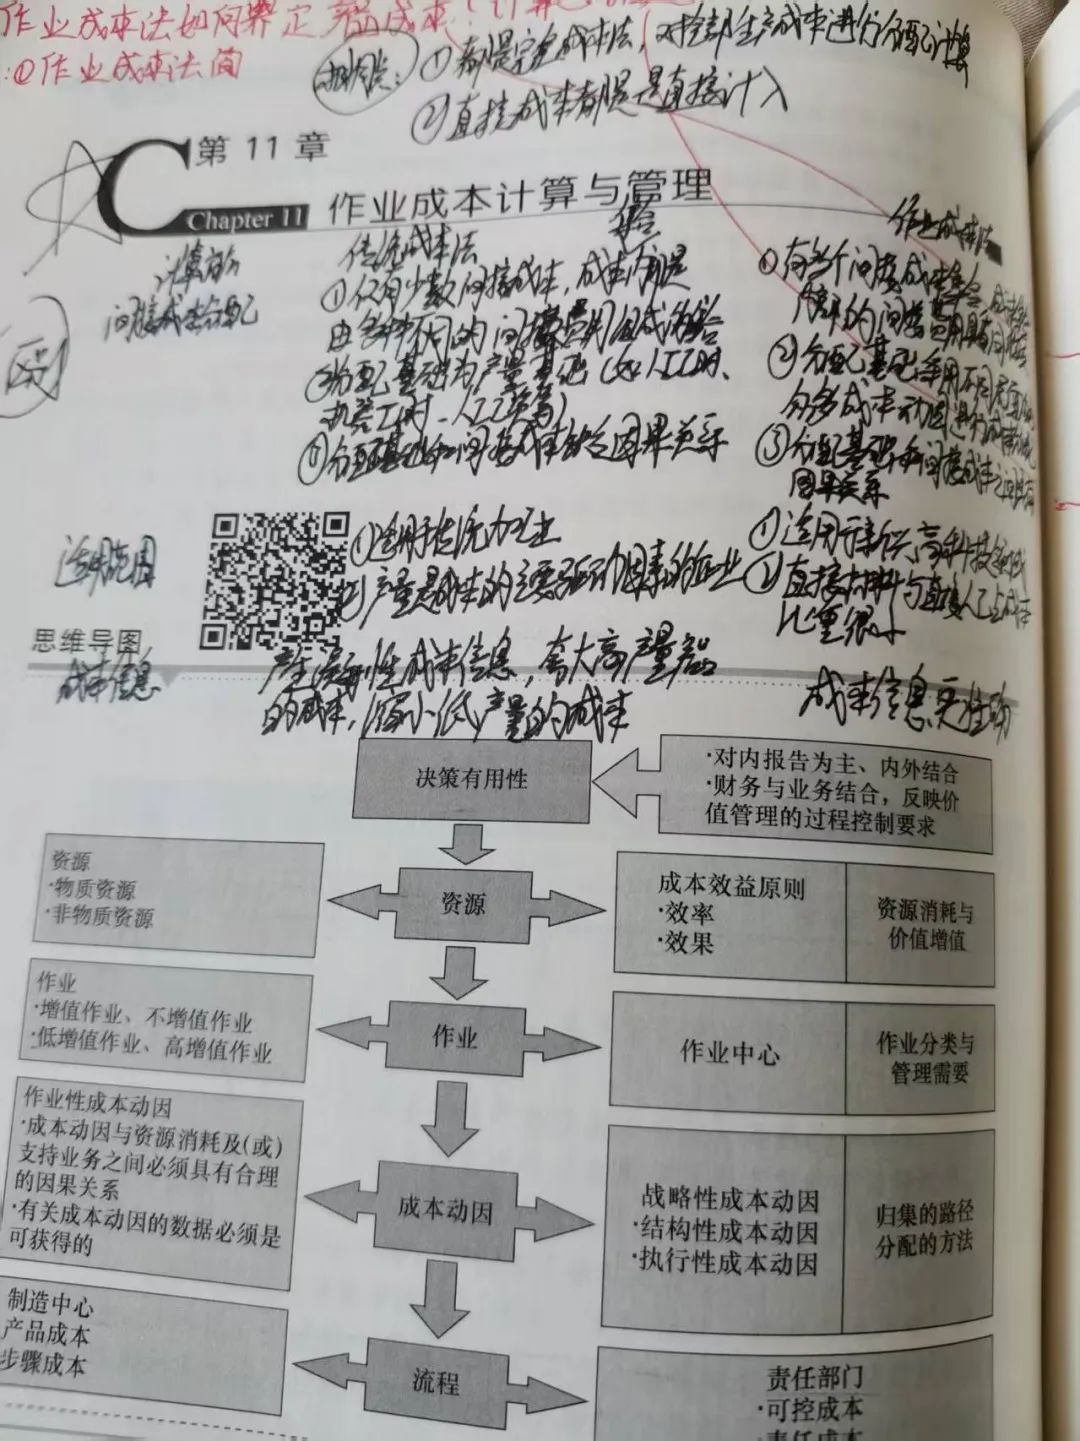 作业成本法如何界定
:①作业成本法简
相同点:①都是完全成本法,对全部生产成本进行分配计算
②直接成本都是直接计入
第 11 章
Chapter 11
作业成本计算与管理
传统成本法
作业成本法
间接成本分配
①仅有少数间接成本,成本内部是
由多种不同的间接费用组成
集合
②分配基础为产量基础(如人工工时、
机器工时、人工
③分配基础和间接成本缺乏因果关系
①有多个间接成本集合
②分配基础采用不同
③分配基础和间接成本之间具有
因果关系
适用范围
①适用于传统加工业
②产量是成本的主要驱动因素的企业
①适用于新兴高科技领域
②直接材料与直接人工占成本
比重很小
思维导图
成本信息
产生误导性成本信息,夸大高产量产品
的成本,缩小低产量的成本
成本信息更准确
决策有用性
·对内报告为主、内外结合
·财务与业务结合,反映价
值管理的过程控制要求
资源
·物质资源
·非物质资源
资源
成本效益原则
·效率
·效果
资源消耗与
价值增值
作业
·增值作业、不增值作业
·低增值作业、高增值作业
作业
作业中心
作业分类与
管理需要
作业性成本动因
·成本动因与资源消耗及(或)
支持业务之间必须具有合理
的因果关系
·有关成本动因的数据必须是
可获得的
成本动因
战略性成本动因
·结构性成本动因
·执行性成本动因
归集的路径
分配的方法
制造中心
产品成本
步骤成本
流程
责任部门
·可控成本
·责任成本